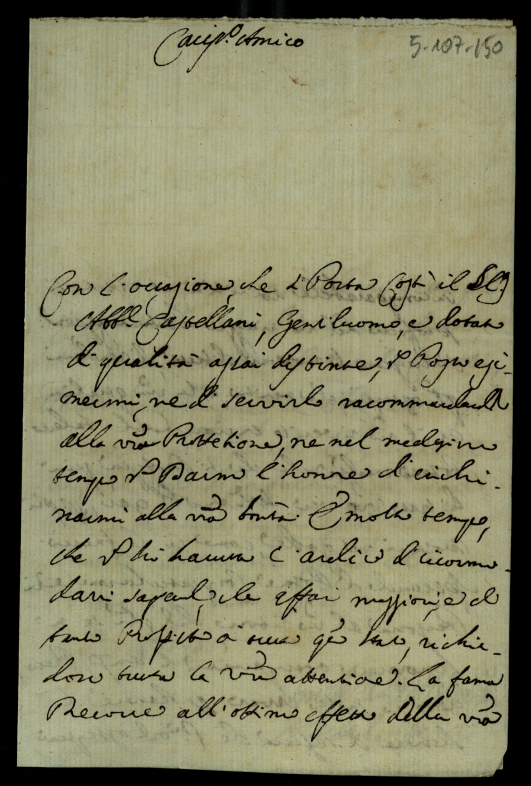 Cariss.o Amico
5-107-150
Con l'occasione, che si Porta Costì il Sig
Abb.e Castellani, Gentiluomo, e dotato
di qualità assai distinte, Posso esi-
mermi, ne di servirlo raccomandandolo
alla vra Protettione, ne nel medesimo
tempo Darmi l'honore d'inchi-
narmi alla vra bontà. È molto tempo,
che hò havuto l'ardire d'incomo-
darvi sapendo, che affari maggiori, e di
tanto Profitto a questo stato, richie-
dono tutta la vra attentione. La fama
Precorre all'ottimo effetto della vra